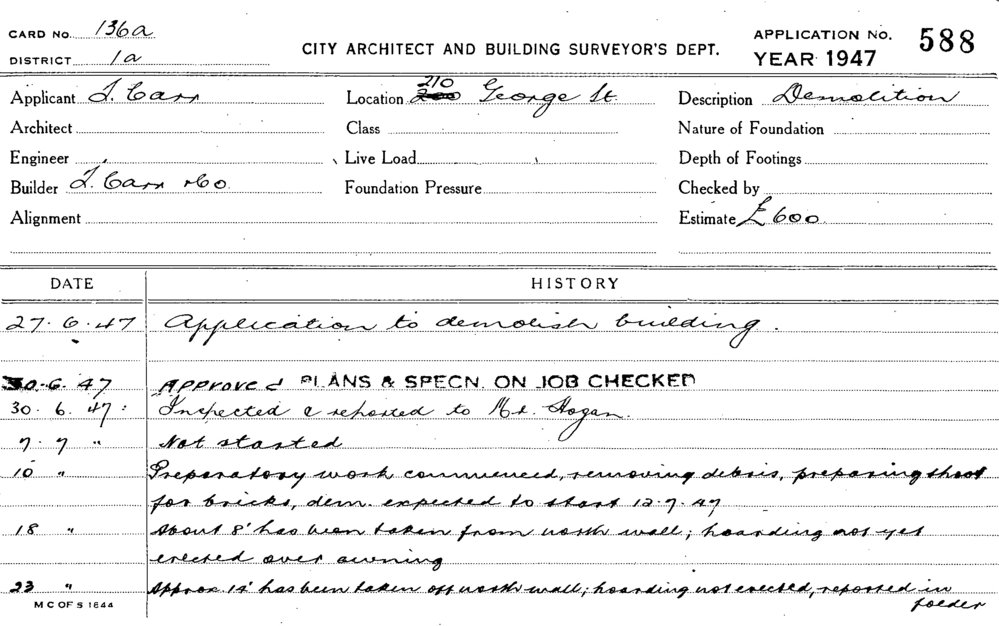 CARD No. 136a
CITY ARCHITECT AND BUILDING SURVEYOR'S DEPT.
APPLICATION No. 588
DISTRICT 1a
YEAR 1947
Applicant T. Carr
Location 210 George St.
Description Demolition
Architect
Class
Nature of Foundation
Engineer
Live Load
Depth of Footings
Builder T. Carr & Co.
Foundation Pressure
Checked by
Alignment
Estimate £600
DATE HISTORY
27.6.47 Application to demolish building.
30.6.47 Approved PLANS & SPECN. ON JOB CHECKED
30.6.47: Inspected & reported to Mr. Hogan.
7.7 " Not started
10 " Preparatory work commenced, removing debris, preparing shoot
for bricks, dem. expected to start 12.7.47
18 " About 8' has been taken from north wall; hoarding not yet
erected over awning
23 " Approx. 15' has been taken off north wall; hoarding not erected, reported in
folder
M C OF S 1644